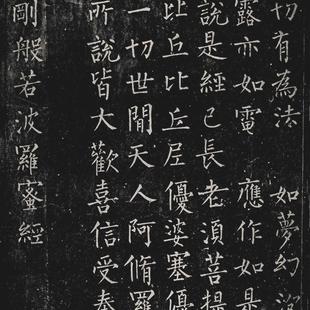 切有為法 如夢幻泡
露亦如電 應作如是
說是經已長老須菩提
比丘比丘尼優婆塞優
一切世間天人阿脩羅
所說皆大歡喜信受奉
剛般若波羅蜜經